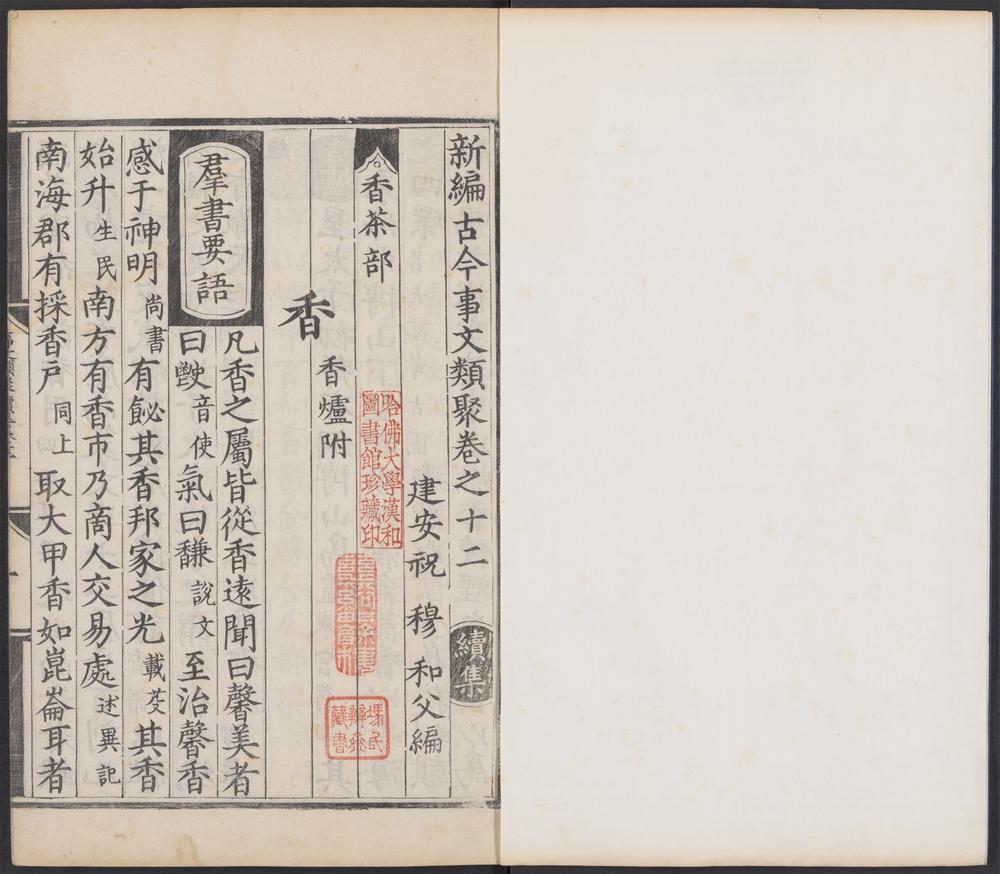 新編古今事文類聚卷之十二 續集
建安祝 穆 和父編
香茶部
香 香爐附
羣書要語
凡香之屬皆從香遠聞曰馨美者
曰䭲音使氣曰馦說文至治馨香
感于神明尚書有飶其香邦家之光載芟其香
始升生民南方有香市乃商人交易處述異記
南海郡有採香戶同上取大甲香如崑崙耳者
哈佛大學漢和
圖書館珍藏印